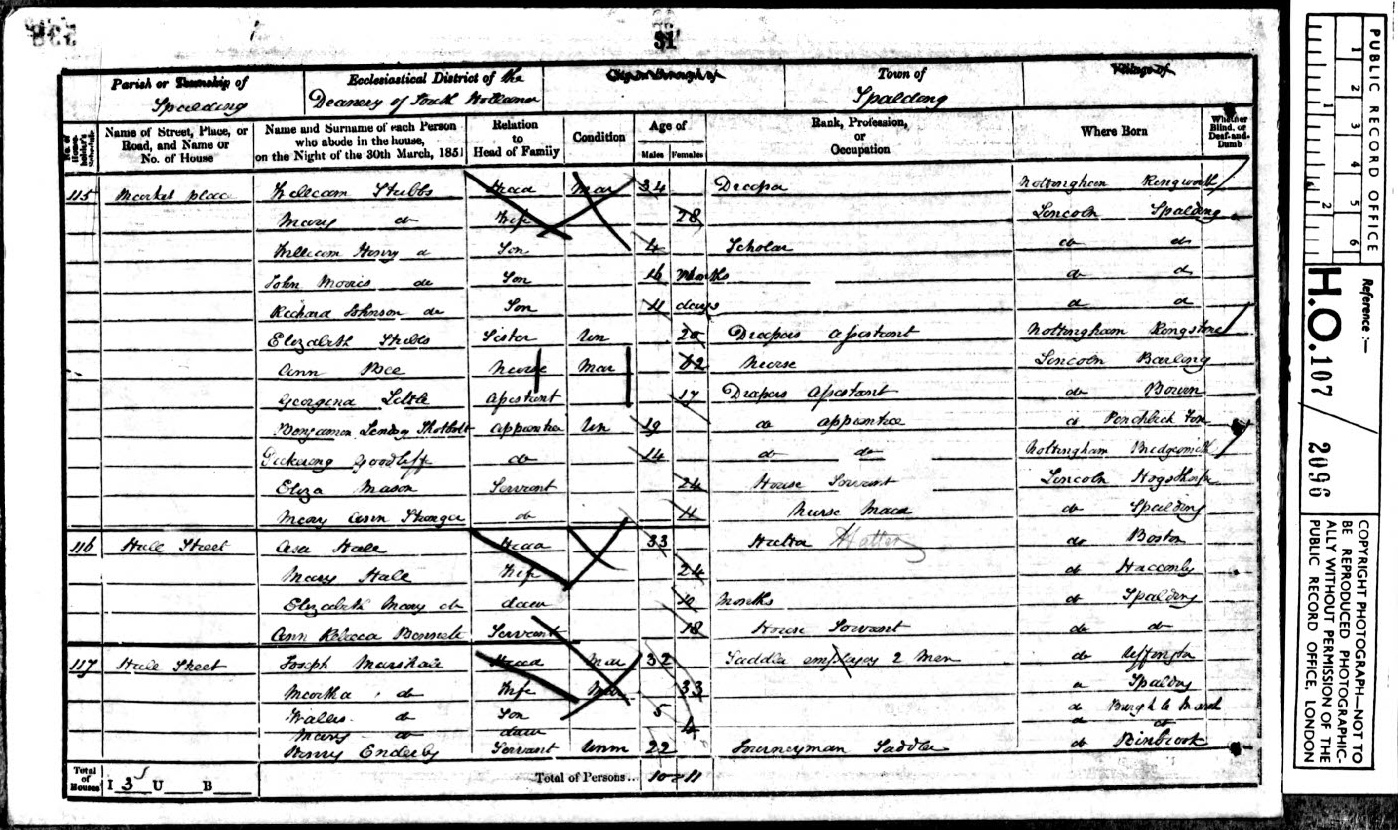 31
Parish or Township of Ecclesiastical District of the City or Borough of Town of Village of
Spalding Deanery of South Holland Spalding
No. of Householder's Schedule Name of Street, Place, or Road, and Name or No. of House Name and Surname of each Person who abode in the house, on the Night of the 30th March, 1851 Relation to Head of Family Condition Age of Males Females Rank, Profession, or Occupation Where Born Whether Blind, or Deaf-and-Dumb
115 Market place William Stubbs Head Mar 34 Draper Nottingham
Mary do Wife 28 Lincoln Spalding
William Henry do Son 4 Scholar do do
John Morris do Son 16 Months do do
Richard Johnson do Son 11 days do do
Elizabeth Stubbs Sister Un 20 Drapers Assistant Nottingham
Ann Bee Nurse Mar Nurse Lincoln Barling
Georgena Little Assistant 17 Drapers Assistant do Bourn
Benjamin Apprentice Un 19 do apprentice do Pinchbeck Fen
Pickering Goodliff do 14 do do Nottingham
Eliza Mason Servant 24 House Servant Lincoln Hogsthorpe
Mary Ann do 11 Nurse Maid do Spalding
116 Hall Street Asa Hale Head 33 Hatter Hatter do Boston
Mary Hale Wife 24 do Hacconby
Elizabeth Mary do daur 10 Months do Spalding
Ann Rebecca Servant 18 House Servant do do
117 Hall Street Joseph Marshall Head Mar 32 Saddler employg 2 Men do Uffington
Martha do Wife Mar 33 do Spalding
Walter do Son 5 do Burgh le Marsh
Mary do daur 4 do do
Henry Enderby Servant Unm 22 Journeyman Saddler do Binbrook
Total of Houses I 3 U B Total of Persons.. 10 11
PUBLIC RECORD OFFICE
1 2 3 4 5 6
1 2
Reference :—
H.O. 107 / 2096
COPYRIGHT PHOTOGRAPH—NOT TO BE REPRODUCED PHOTOGRAPHIC-ALLY WITHOUT PERMISSION OF THE PUBLIC RECORD OFFICE, LONDON